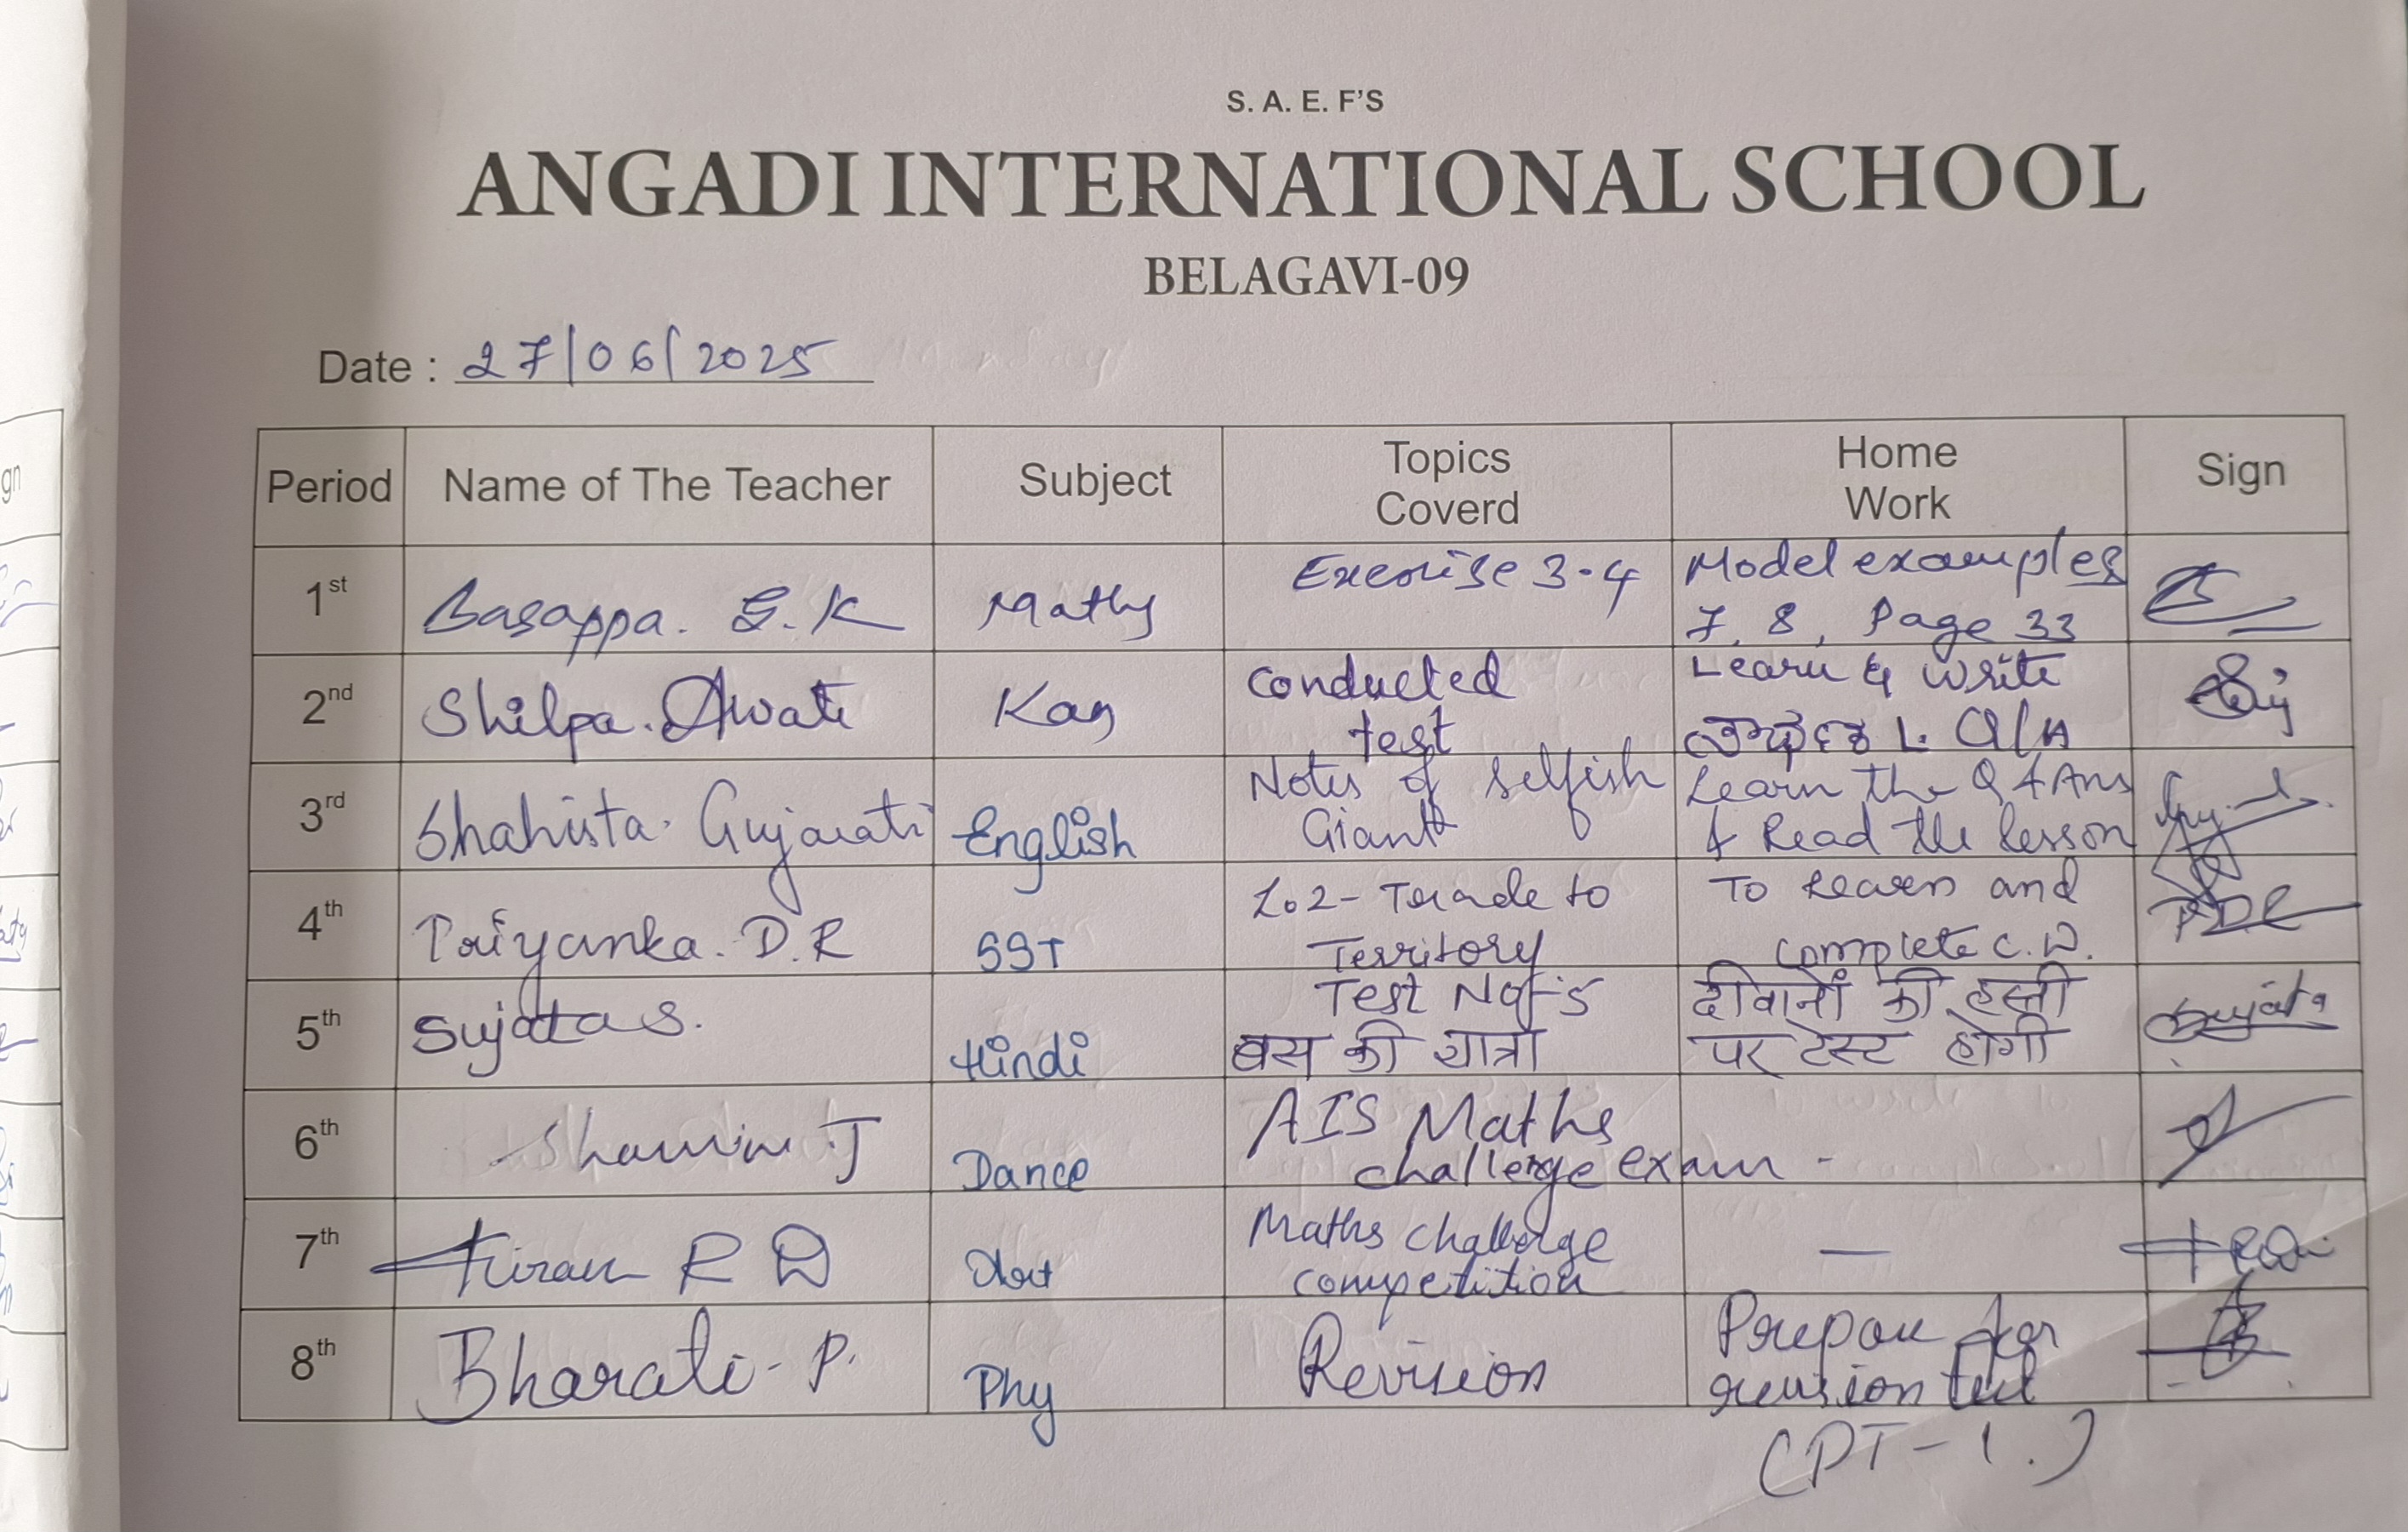 S. A. E. F'S
ANGADI INTERNATIONAL SCHOOL
BELAGAVI-09
Date : 27/06/2025
Period Name of The Teacher Subject Topics Coverd Home Work Sign
1st Basappa. G. K Maths Exercise 3.4 Model examples
7, 8, Page 33
2nd Shilpa. Awati Kan conducted Learn & write
test L. Q/A
3rd Shahista. Gujarati English Notes of selfish Learn the Q & Ans
Giant & Read the lesson
4th Priyanka. D.R SST L.2- Trade to To learn and
Territory complete C.W.
5th Sujata S. Hindi Test दीवानों की हस्ती Sujata
बस की यात्रा पर टेस्ट होगी
6th Dance AIS Maths
challenge exam -
7th Kiran R D Art Maths challenge —
competition
8th Bharati - P. Phy Revision Prepare for
revision test
(PT-1.)